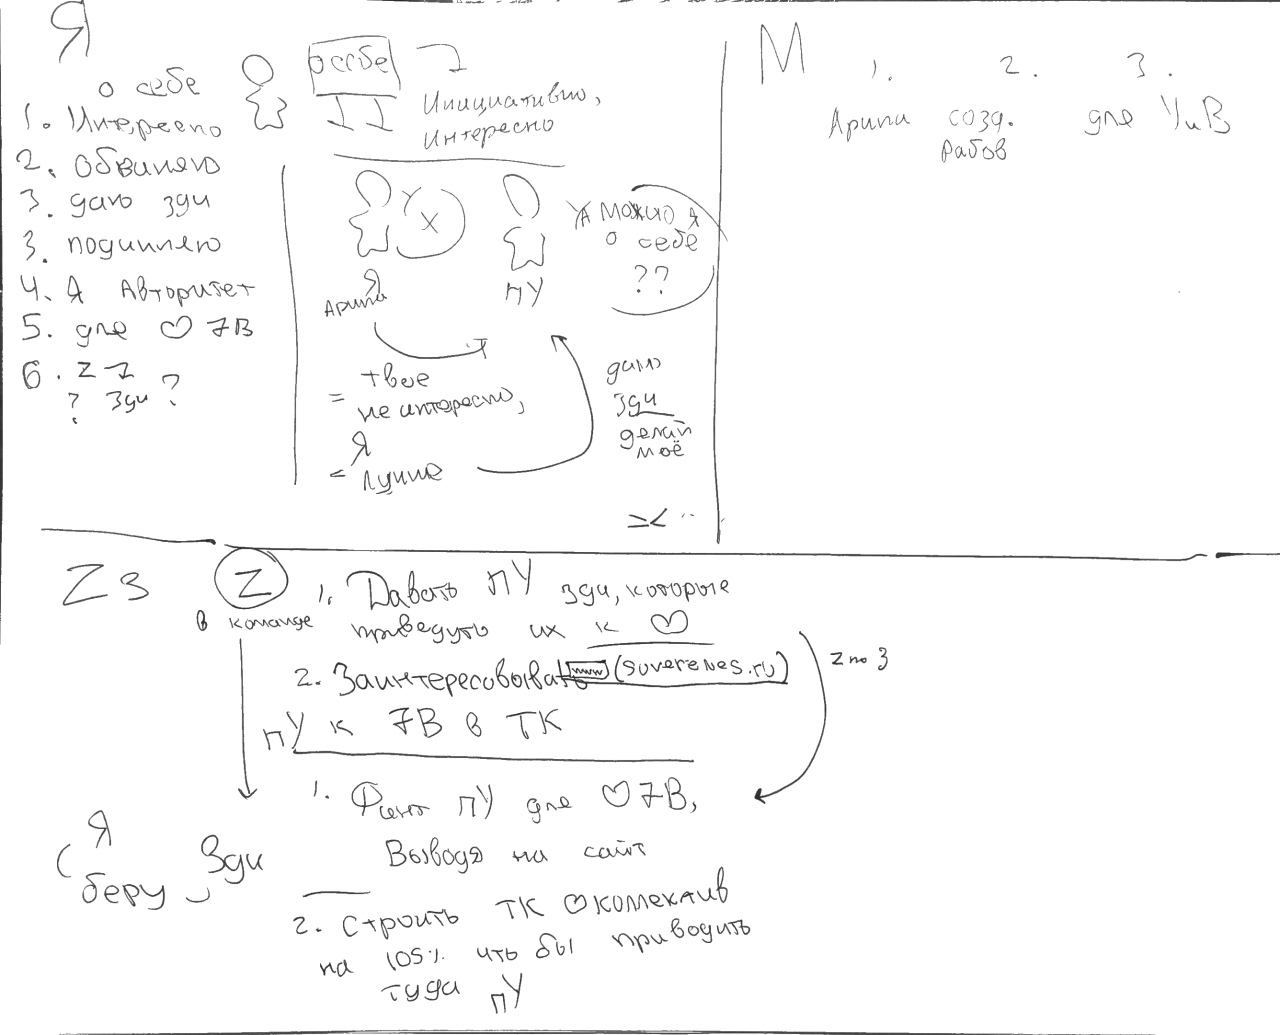 Я
о себе
1. Интересно
2. обвиняю
3. даю зди
3. подчиняю
4. Я Авторитет
5. для ♡ 7В
6. Z
? Зди ?
о себе
Инициативно,
Интересно
Х
Я
Арипа
ПУ
Можно я
о себе
??
= твое
не интересно,
Я
= лучше
даю
зди
делай
моё
М
1. 2. 3.
Арипа созд. для УиВ
рабов
Z3
Z
в команде
1. Давать ПУ зди, которые
приведуть их к ♡
2. Заинтересовывать www (suverenes.ru)
ПУ к 7В в ТК
Z по 3
1. ПУ для ♡ 7В,
Выводя на сайт
(Я
беру) Зди
2. Строить ТК ♡ коллектив
на 105% что бы приводить
туда ПУ